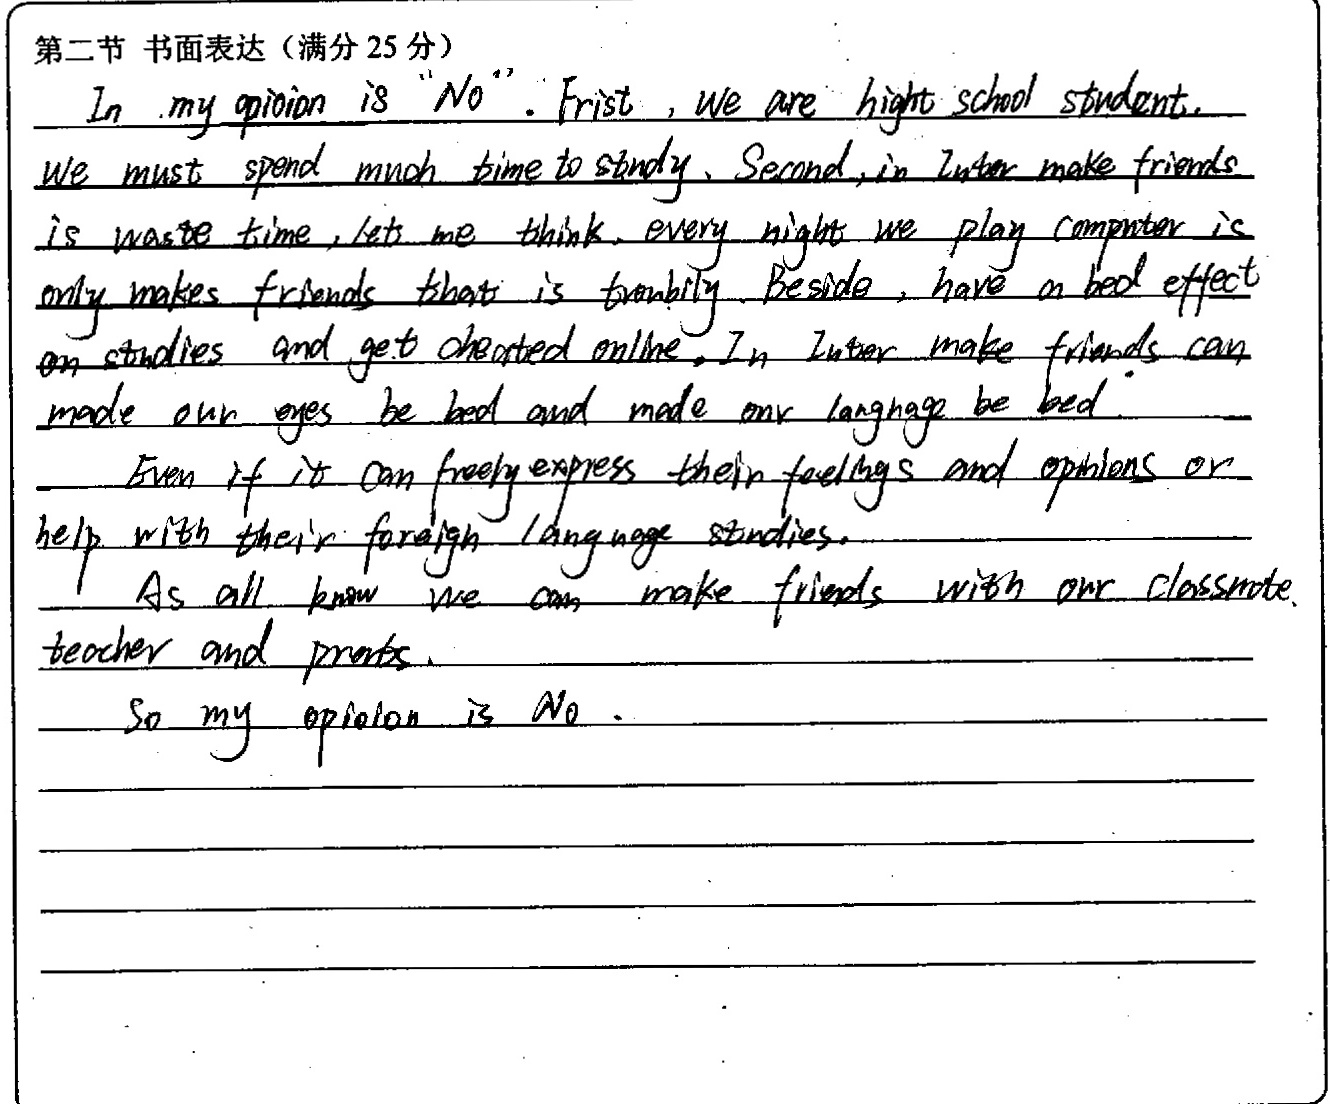 第二节 书面表达（满分 25 分）
In my opioion is "No". Frist, we are hight school student.
We must spend much time to study. Second, in Inter make friends
is waste time, lets me think. every night we play computer is
only makes friends that is troubily. Beside, have a bed effect
on studies and get cheated online. In Inter make friends can
made our eyes be bed and made our langnage be bed.
Even if it can freely express their feelings and opinions or
help with their foreign language studies.
As all know we can make friends with our classmate.
teacher and prents.
So my opioion is No.